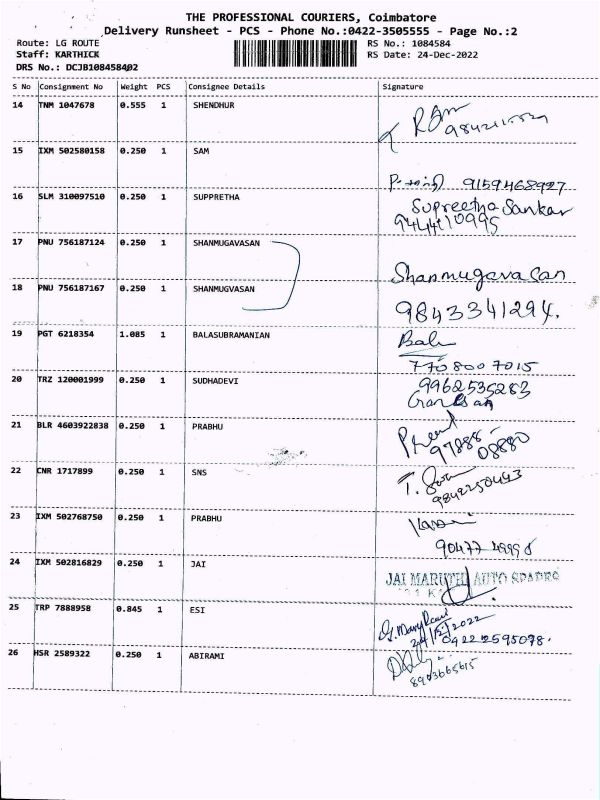 THE PROFESSIONAL COURIERS, Coimbatore
Delivery Runsheet - PCS - Phone No.:0422-3505555 - Page No.:2
Route: LG ROUTE RS No.: 1084584
Staff: KARTHICK RS Date: 24-Dec-2022
DRS No.: DCJB108458402
S No Consignment No Weight PCS Consignee Details Signature
14 TNM 1047678 0.555 1 SHENDHUR
15 IXM 502580158 0.250 1 SAM
9159468927
16 SLM 310097510 0.250 1 SUPPRETHA Supreetha Sankar
17 PNU 756187124 0.250 1 SHANMUGAVASAN
Shanmugavasan
18 PNU 756187167 0.250 1 SHANMUGVASAN
9843341294.
19 PGT 6218354 1.085 1 BALASUBRAMANIAN Bala
770 800 7015
20 TRZ 120001999 0.250 1 SUDHADEVI 9962535263
21 BLR 4603922838 0.250 1 PRABHU
97886-
08880
22 CNR 1717899 0.250 1 SNS
9842250443
23 IXM 502768750 0.250 1 PRABHU
24 IXM 502816829 0.250 1 JAI
JAI MARUTHI AUTO SPARES
25 TRP 7888958 0.845 1 ESI
24/12/2022
04222595098.
26 HSR 2589322 0.250 1 ABIRAMI
8903665615